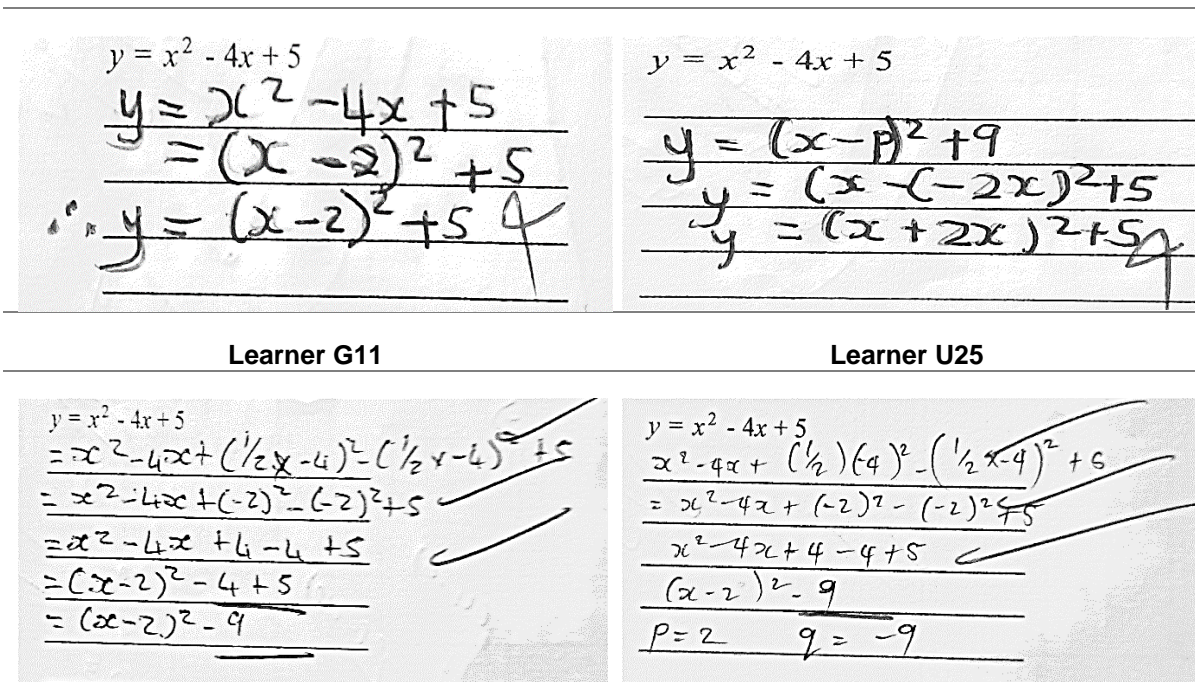 y = x² - 4x + 5
y = x² - 4x + 5
= (x - 2)² + 5
∴ y = (x - 2)² + 5
y = x² - 4x + 5
y = (x - p)² + q
y = (x - (-2x))² + 5
y = (x + 2x)² + 5
Learner G11
Learner U25
y = x² - 4x + 5
= x² - 4x + (1/2 x - 4)² - (1/2 x - 4)² + 5
= x² - 4x + (-2)² - (-2)² + 5
= x² - 4x + 4 - 4 + 5
= (x - 2)² - 4 + 5
= (x - 2)² - 9
y = x² - 4x + 5
x² - 4x + (1/2)(-4)² - (1/2 x -4)² + 5
= x² - 4x + (-2)² - (-2)² + 5
x² - 4x + 4 - 4 + 5
(x - 2)² - 9
P = 2 q = -9